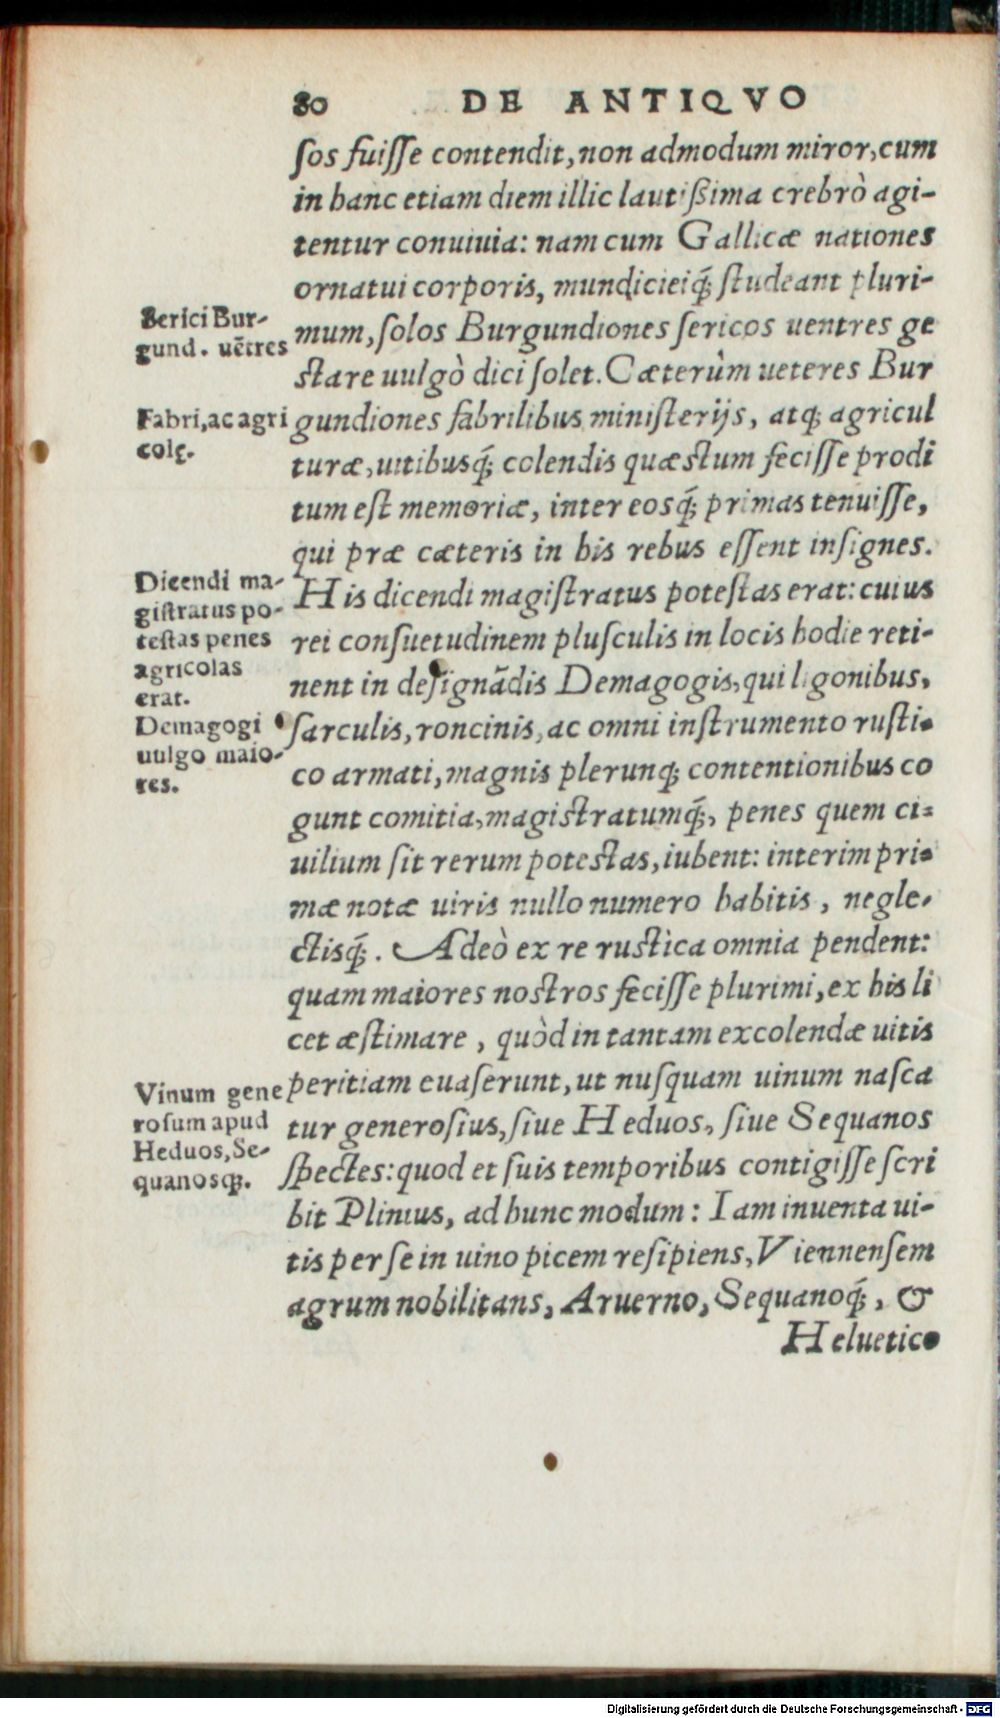 80 DE ANTIQVO
ſos fuiſſe contendit, non admodum miror, cum
in hanc etiam diem illic lautißima crebrò agi-
tentur conuiuia: nam cum Gallicæ nationes
ornatui corporis, mundicieiq́; ſtudeant pluri-
mum, ſolos Burgundiones ſericos uentres ge
ſtare uulgò dici ſolet. Cæterùm ueteres Bur
gundiones fabrilibus miniſterijs, atq; agricul
turæ, uitibusq́; colendis quæſtum feciſſe prodi
tum eſt memoriæ, inter eosq́; primas tenuiſſe,
qui præ cæteris in his rebus eſſent inſignes.
His dicendi magiſtratus poteſtas erat: cuius
rei conſuetudinem pluſculis in locis hodie reti-
nent in deſignãdis Demagogis, qui ligonibus,
ſarculis, roncinis, ac omni inſtrumento ruſti-
co armati, magnis plerunq; contentionibus co
gunt comitia, magiſtratumq́;, penes quem ci-
uilium ſit rerum poteſtas, iubent: interim pri-
mæ notæ uiris nullo numero habitis, negle-
ctisq́;. Adeò ex re ruſtica omnia pendent:
quam maiores noſtros feciſſe plurimi, ex his li
cet æſtimare, quòd in tantam excolendæ uitis
peritiam euaſerunt, ut nuſquam uinum naſca
tur generoſius, ſiue Heduos, ſiue Sequanos
ſpectes: quod et ſuis temporibus contigiſſe ſcri
bit Plinius, ad hunc modum: Iam inuenta ui-
tis per ſe in uino picem reſipiens, Viennenſem
agrum nobilitans, Aruerno, Sequanoq́;, &
Heluetico
Serici Bur-
gund. uẽtres
Fabri, ac agri
colę.
Dicendi ma-
giſtratus po-
teſtas penes
agricolas
erat.
Demagogi
uulgo maio-
res.
Vinum gene
roſum apud
Heduos, Se-
quanosq;.
Digitalisierung gefördert durch die Deutsche Forschungsgemeinschaft - DFG